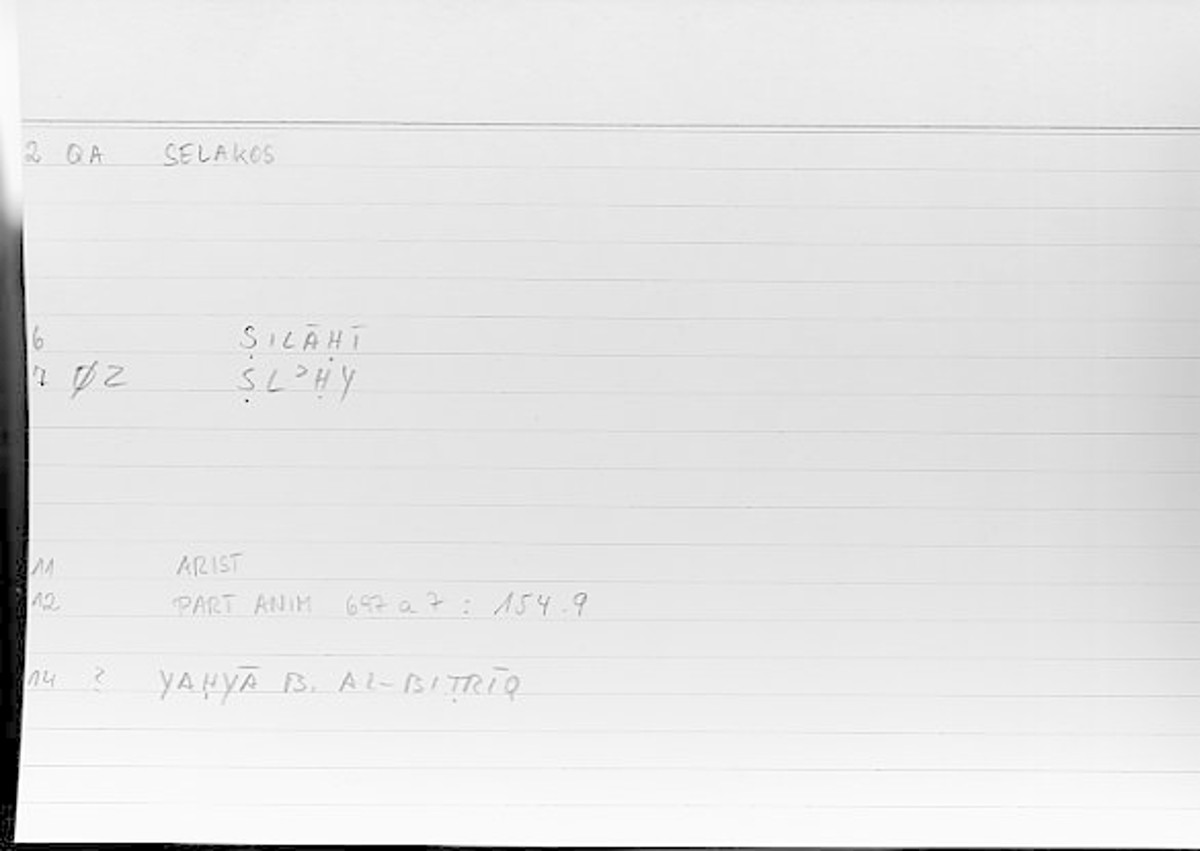 2 QA SELAKOS
6 ṢILĀḤĪ
7 ØZ ṢLʾḤY
11 ARIST
12 PART ANIM 697 a 7 : 154.9
14 ? YAḤYĀ B. AL-BIṬRĪQ